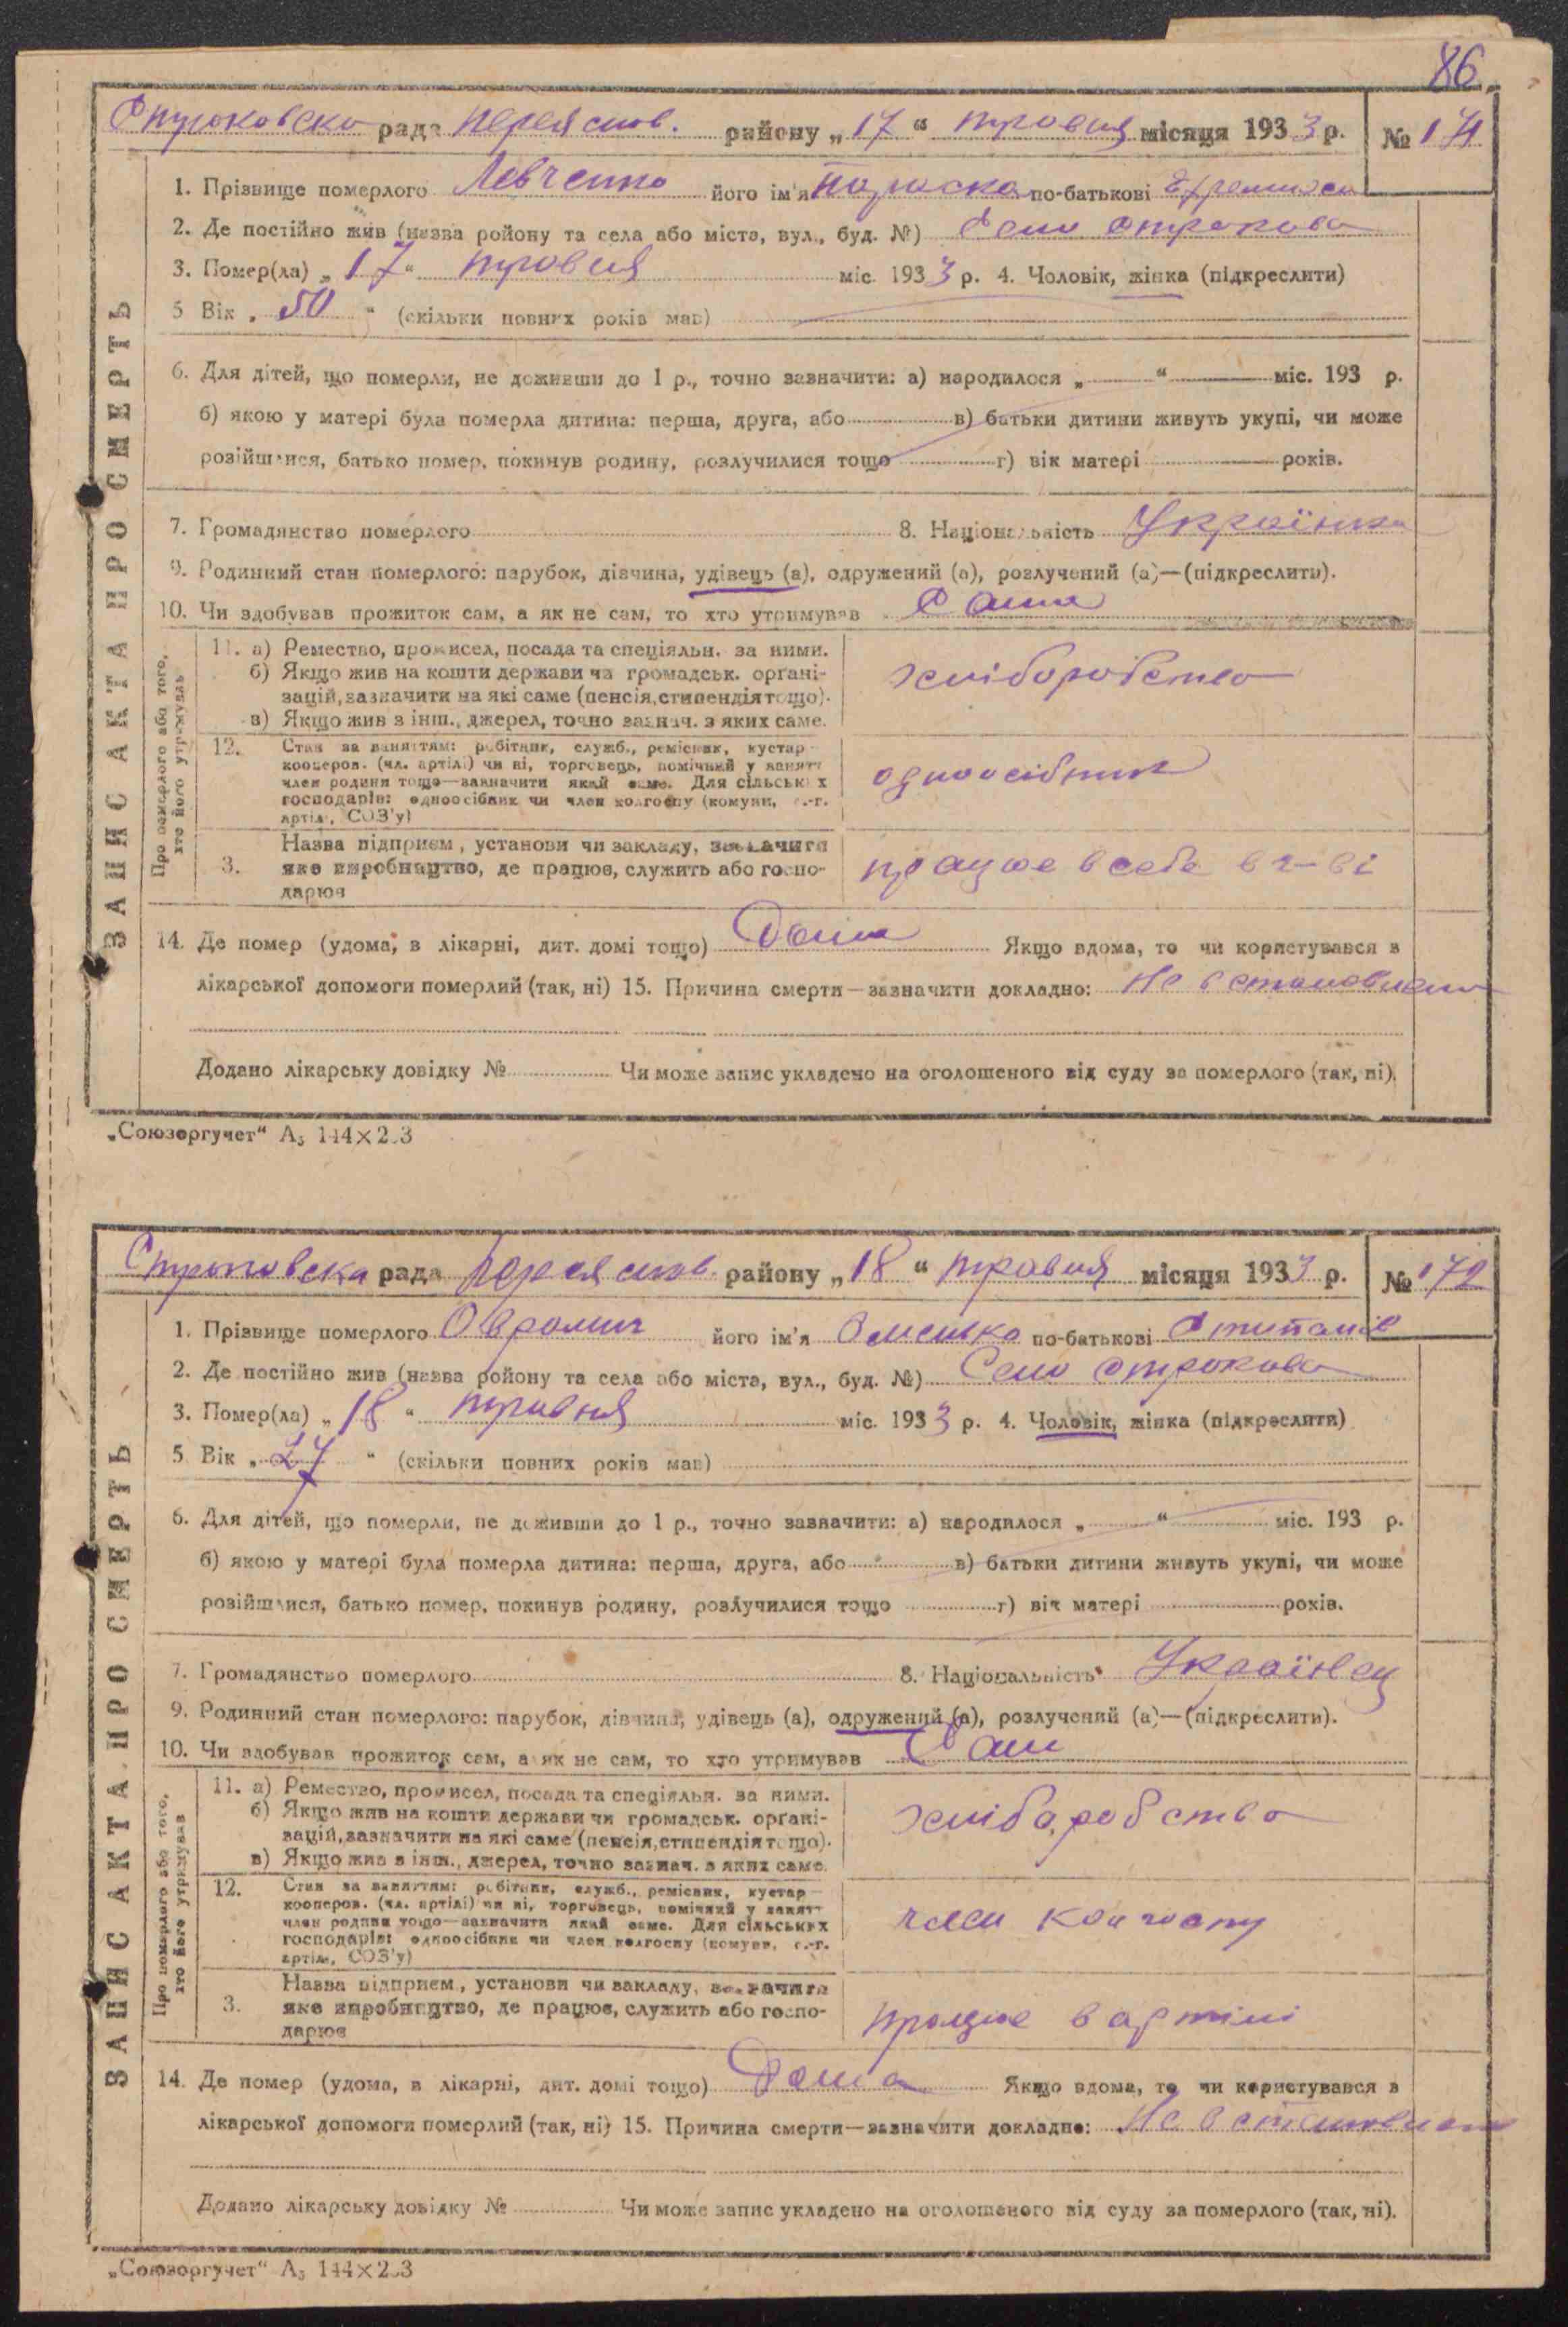 86
Строковска рада Переяслов. району „17“ травня місяця 1933 р. № 171
ЗАПИС АКТА ПРО СМЕРТЬ
1. Прізвище померлого Левченко його ім'я по-батькові
2. Де постійно жив (назва ройону та села або міста, вул., буд. №) Село Строкова
3. Помер(ла) „17“ травня міс. 1933 р. 4. Чоловік, жінка (підкреслити)
5 Вік „50“ (скільки повних років мав)
6. Для дітей, що померли, не доживши до 1 р., точно зазначити: а) народилося „ “ міс. 193 р.
б) якою у матері була померла дитина: перша, друга, або в) батьки дитини живуть укупі, чи може
розійшлися, батько помер, покинув родину, розлучилися тощо г) вік матері років.
7. Громадянство померлого 8. Національність Українка
9. Родинний стан померлого: парубок, дівчина, удівець (а), одружений (а), розлучений (а)—(підкреслити).
10. Чи здобував прожиток сам, а як не сам, то хто утримував Сама
Про померлого або того,
хто його утримував
11. а) Ремество, промисел, посада та спеціяльн. за ними.
б) Якщо жив на кошти держави чи громадськ. органі-
зацій, зазначити на які саме (пенсія, стипендія тощо).
в) Якщо жив з інш., джерел, точно зазнач. з яких саме.
хліборобство
12. Стан за заняттям: робітник, служб., ремісник, кустар
кооперов. (чл. артілі) чи ні, торговець, помічний у занятт
член родини тощо—зазначити який саме. Для сільських
господарів: одноосібник чи член колгоспу (комуни, с.-г.
артілі, СОЗ'у)
одноосібник
3. Назва підприєм, установи чи закладу, зазначити
яке виробництво, де працює, служить або госпо-
дарює
працює в себе в г-ві
14. Де помер (удома, в лікарні, дит. домі тощо) Дома Якщо вдома, то чи користувався в
лікарської допомоги померлий (так, ні) 15. Причина смерти—зазначити докладно: Не встановлено
Додано лікарську довідку № Чи може запис укладено на оголошеного від суду за померлого (так, ні).
„Союзоргучет“ А₅ 144×203
Строковска рада Переяслов. району „18“ травня місяця 1933 р. № 172
ЗАПИС АКТА ПРО СМЕРТЬ
1. Прізвище померлого його ім'я Омелько по-батькові
2. Де постійно жив (назва ройону та села або міста, вул., буд. №) Село Строкова
3. Помер(ла) „18“ травня міс. 1933 р. 4. Чоловік, жінка (підкреслити)
5 Вік „27“ (скільки повних років мав)
6. Для дітей, що померли, не доживши до 1 р., точно зазначити: а) народилося „ “ міс. 193 р.
б) якою у матері була померла дитина: перша, друга, або в) батьки дитини живуть укупі, чи може
розійшлися, батько помер, покинув родину, розлучилися тощо г) вік матері років.
7. Громадянство померлого 8. Національність Українец
9. Родинний стан померлого: парубок, дівчина, удівець (а), одружений (а), розлучений (а)—(підкреслити).
10. Чи здобував прожиток сам, а як не сам, то хто утримував Сам
Про померлого або того,
хто його утримував
11. а) Ремество, промисел, посада та спеціяльн. за ними.
б) Якщо жив на кошти держави чи громадськ. органі-
зацій, зазначити на які саме (пенсія, стипендія тощо).
в) Якщо жив з інш., джерел, точно зазнач. з яких саме.
хліборобство
12. Стан за заняттям: робітник, служб., ремісник, кустар
кооперов. (чл. артілі) чи ні, торговець, помічний у занятт
член родини тощо—зазначити який саме. Для сільських
господарів: одноосібник чи член колгоспу (комуни, с.-г.
артілі, СОЗ'у)
член колгоспу
3. Назва підприєм, установи чи закладу, зазначити
яке виробництво, де працює, служить або госпо-
дарює
працює в артілі
14. Де помер (удома, в лікарні, дит. домі тощо) Дома Якщо вдома, то чи користувався в
лікарської допомоги померлий (так, ні) 15. Причина смерти—зазначити докладно: Не встановлено
Додано лікарську довідку № Чи може запис укладено на оголошеного від суду за померлого (так, ні).
„Союзоргучет“ А₅ 144×203